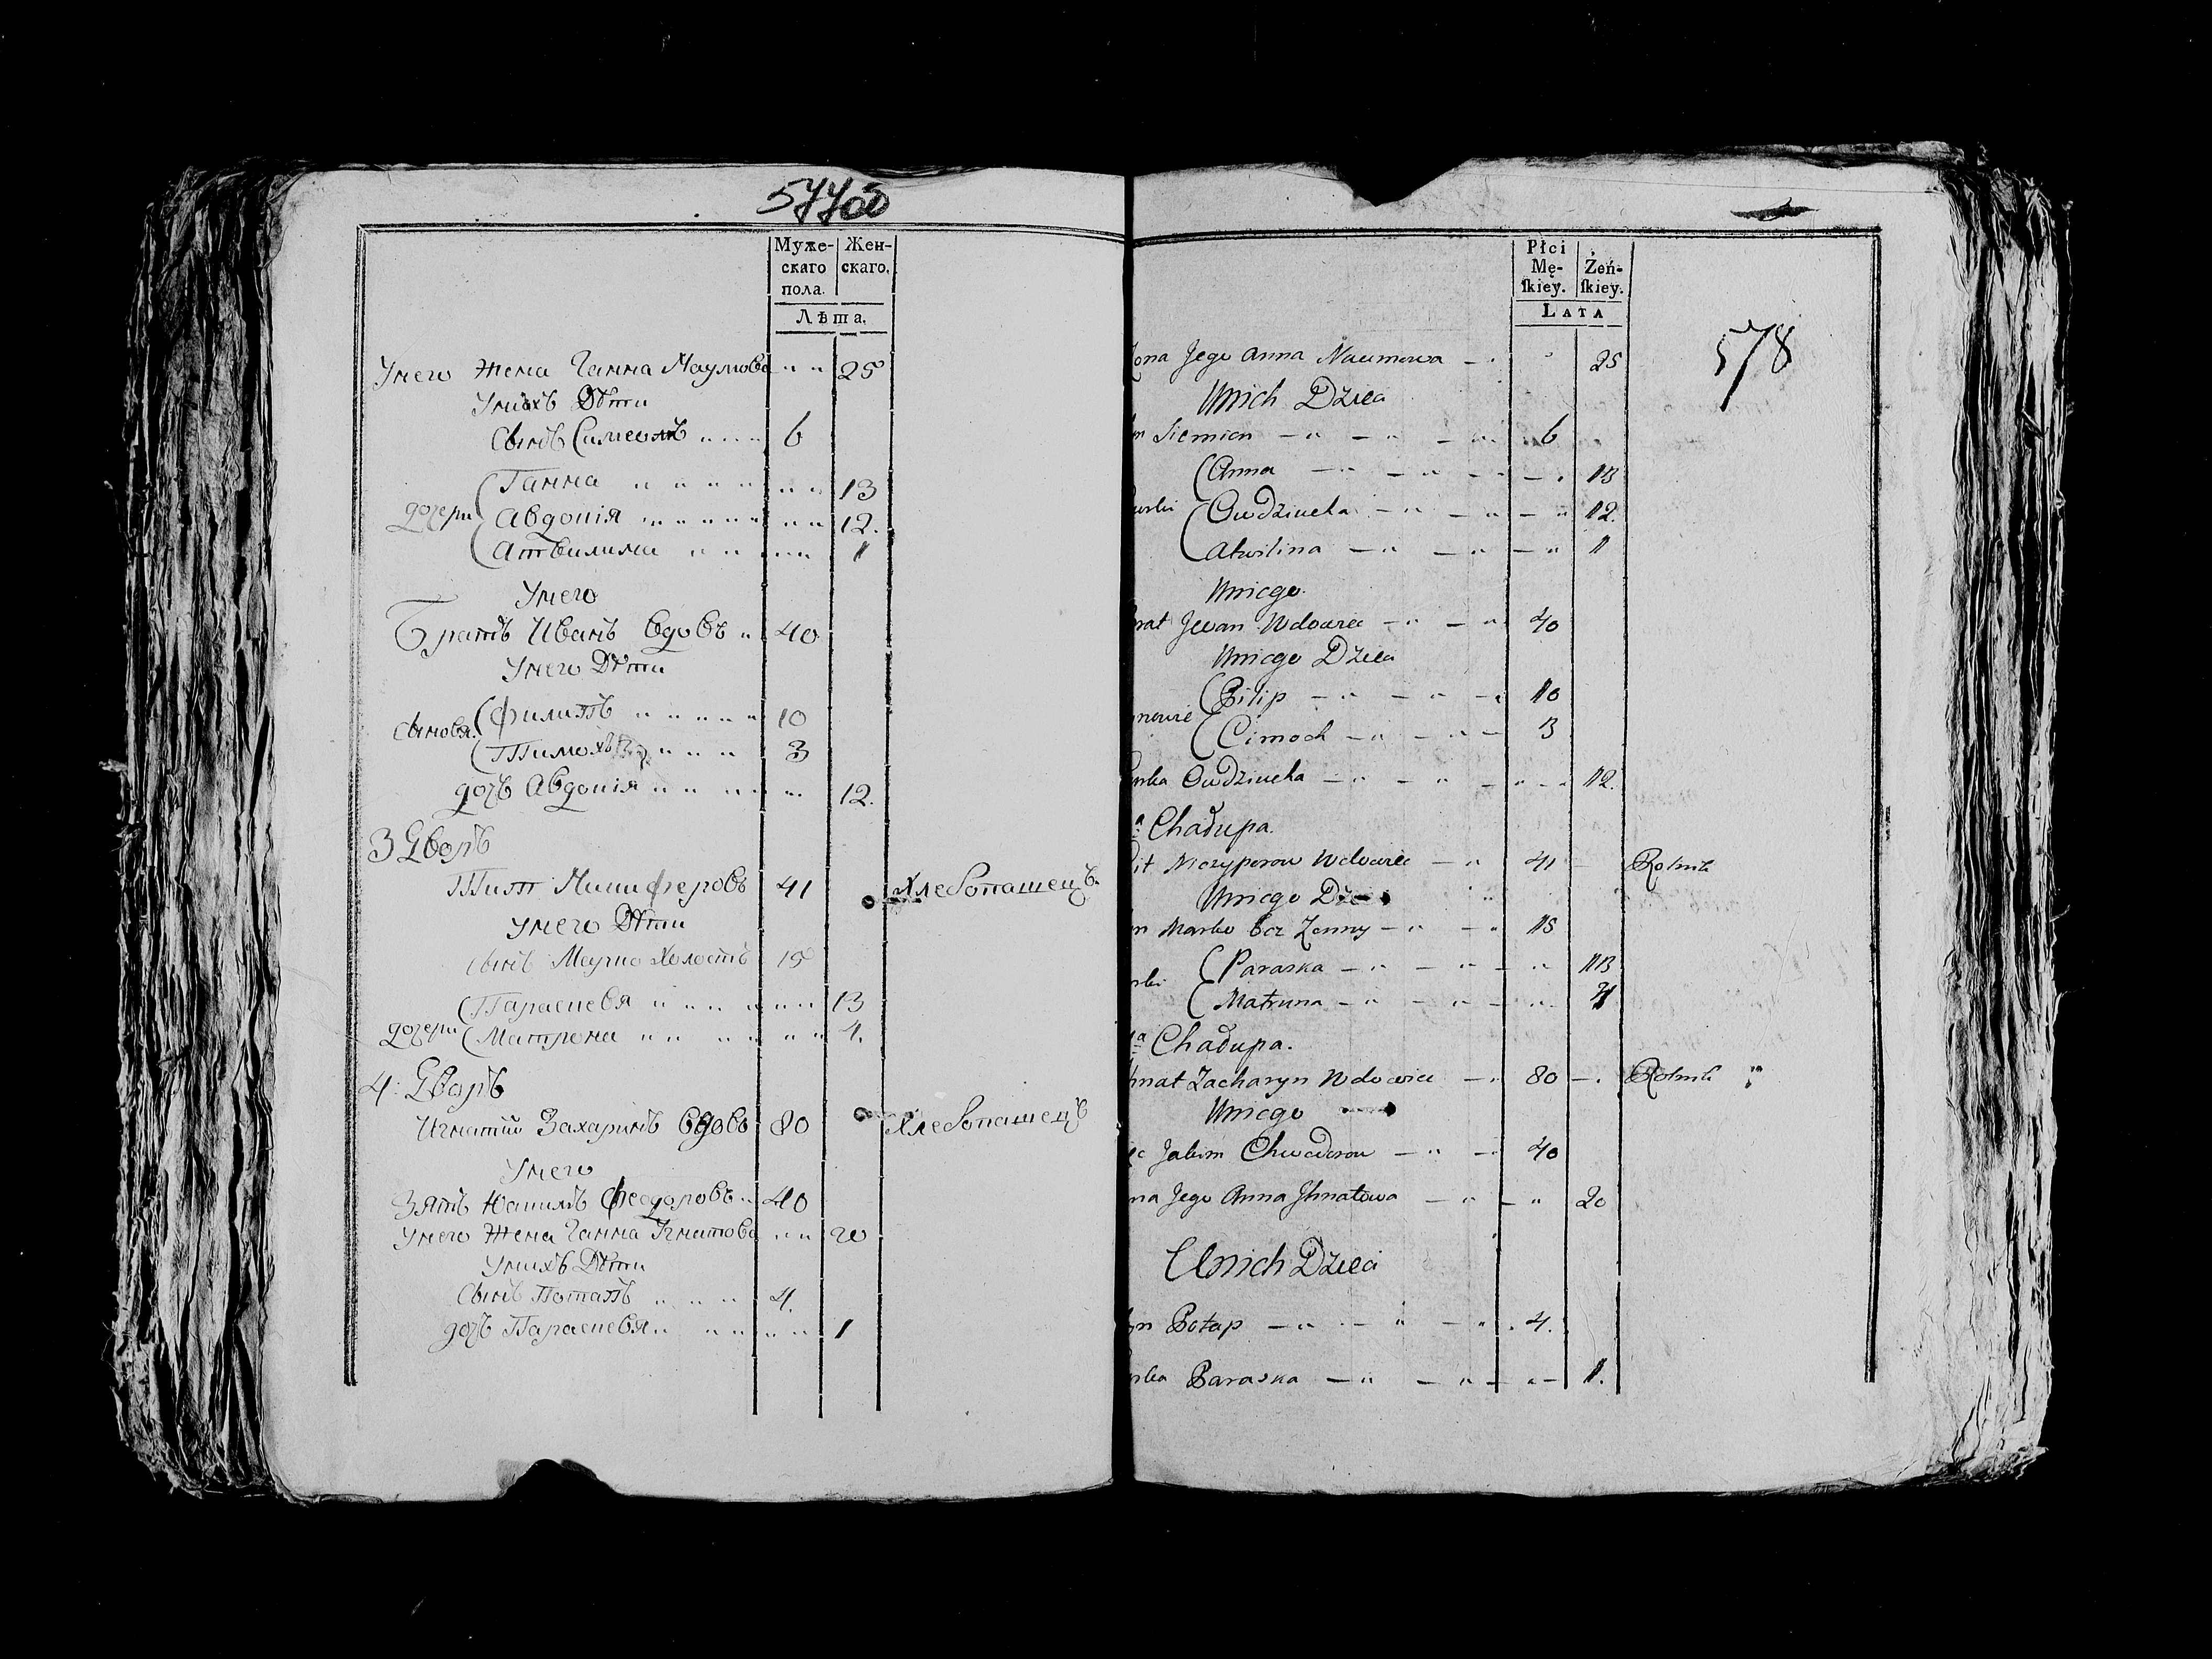 577об
Муже-
скаго
пола.
Жен-
скаго.
Лѣта.
Унего Жена Ганна Наумова " " 25
Унихъ Дѣти
Сынъ Симеонъ " " " 6
Ганна " " " " " " 13
дочери Авдотія " " " " " " " 12.
Атвилина " " " " " 1
Унего
Братъ Иванъ Вдовъ " 40
Унего Дѣти
Филипъ " " " " " 10
Сыновя.
Тимохъ " " " 3
дочъ Авдотія " " " " " 12.
3 Дворъ
Титъ Ничиферовъ 41 Хлебопашецъ.
Унего Дѣти
Сынъ Марко Холостъ 15
Параскевя " " " " " " 13
дочери Матрона " " " " " " 4.
4: Дворъ
Игнатій Захаринъ Вдовъ 80 Хлебопашецъ
Унего
Зять Юхимъ Феодоровъ " 40
Унего Жена Ганна Игнатова " " 20
Унихъ Дѣти
Сынъ Потапъ " " " 4.
дочъ Параскевя " " " " " 1
Płci
Mę-
ſkiey.
Żeń-
ſkiey.
LATA
578
ona Jego Anna Naumowa — " 25
Unich Dzieci
n Siemion — " — " — " 6
Anna — " — " — — . 13
urki Owdziucha — " — " — " 12.
Atwilina — " — " — " 1
Uniego.
rat Jwan Wdowiec — " — " 40
Uniego Dzieci
Pilip — " — " — " 10
nowie
Cimoch — " — " — 3
rka Owdziucha — " — " — " — " 12.
a Chałupa.
it Niczyporow Wdowiec — " 41 — Rolnik
Uniego Dzieci
n Marko bez Żonny — " — " 15
Paraska — " — " — " 13
rki
Matruna — " — " — " 4
a Chałupa.
hnat Zacharyn Wdowiec — " 80 — . Rolnik "
Uniego
c Jakim Chwedorow — " — " 40
na Jego Anna Jhnatowa — " — " 20
Unich Dzieci
yn Potap — " — " — " . 4.
rka Paraska — " — " — " — 1.